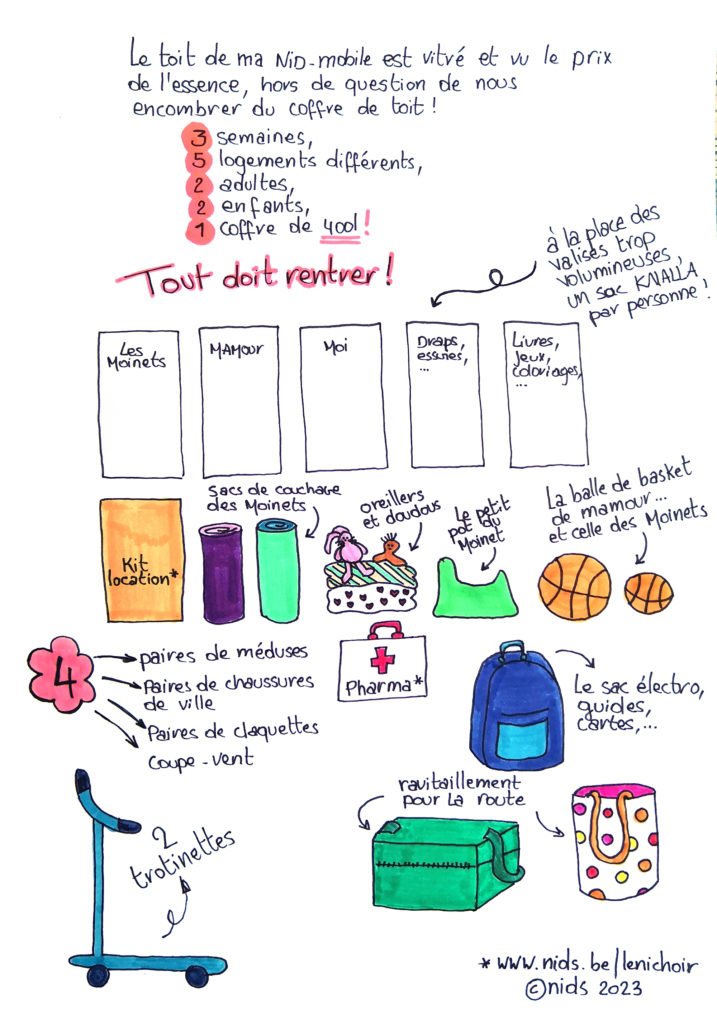 Le toit de ma NiD-mobile est vitré et vu le prix
de l'essence, hors de question de nous
encombrer du coffre de toit !
3 semaines,
5 logements différents,
2 adultes,
2 enfants,
1 coffre de 400l !
Tout doit rentrer !
à la place des
valises trop
volumineuses,
un sac KNALLA
par personne !
Les
Moinets
MAMOUR
Moi
Draps,
essuies,
...
Livres,
Jeux,
coloriages,
...
Kit
location*
Sacs de couchage
des Moinets
oreillers
et doudous
Le petit
pot du
Moinet
La balle de basket
de mamour...
et celle des Moinets
4
paires de méduses
Paires de chaussures
de ville
Paires de claquettes
coupe-vent
Pharma*
Le sac électro,
guides,
cartes,...
2
trotinettes
ravitaillement
pour la route
* www.nids.be/lenichoir
©nids 2023